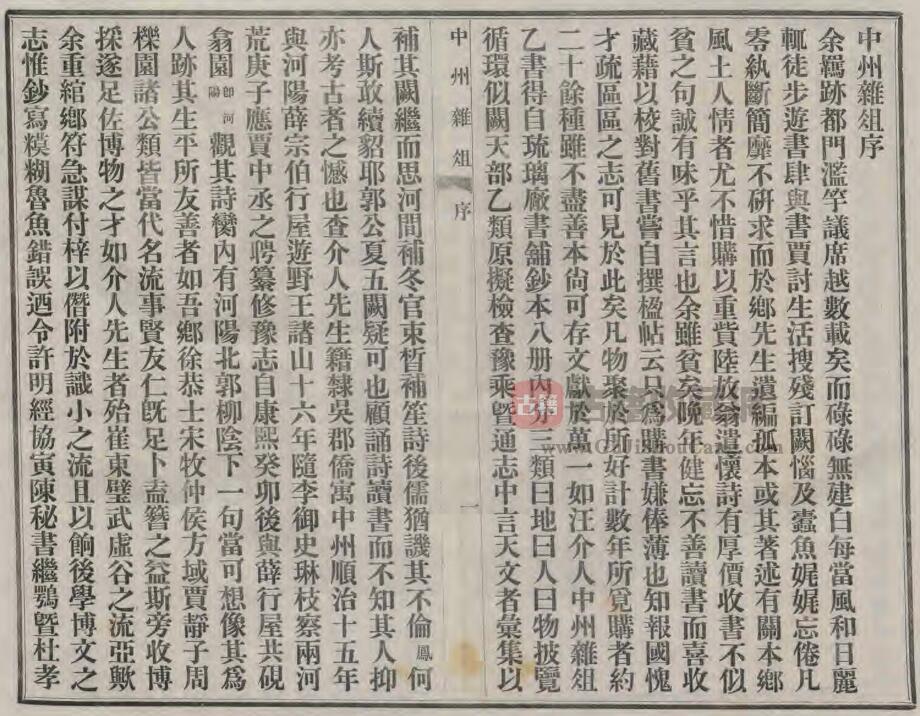 中州雜俎序
余羈跡都門濫竽議席越數載矣而碌碌無建白每當風和日麗
輒徒步遊書肆與書賈討生活搜殘訂闕惱及蠹魚娓娓忘倦凡
零紈斷簡靡不研求而於鄉先生遺編孤本或其著述有關本鄉
風土人情者尤不惜購以重貲陸放翁遣懷詩有厚價收書不似
貧之句誠有味乎其言也余雖貧矣晚年健忘不善讀書而喜收
藏藉以校對舊書嘗自撰楹帖云只爲購書嫌俸薄也知報國愧
才疏區區之志可見於此矣凡物聚於所好計數年所覓購者約
二十餘種雖不盡善本尙可存文獻於萬一如汪介人中州雜俎
乙書得自琉璃廠書舖鈔本八册內分三類曰地曰人曰物披覽
循環似闕天部乙類原擬檢查豫乘暨通志中言天文者彙集以
中州雜俎 序 一
補其闕繼而思河間補冬官束晳補笙詩後儒猶譏其不倫鳳何
人斯敢續貂耶郭公夏五闕疑可也顧誦詩讀書而不知其人抑
亦考古者之憾也查介人先生籍隸吳郡僑寓中州順治十五年
與河陽薛宗伯行屋遊野王諸山十六年隨李御史琳枝察兩河
荒庚子應賈中丞之聘纂修豫志自康熙癸卯後與薛行屋共硯
翕園卽河陽觀其詩欒內有河陽北郭柳陰下一句當可想像其爲
人跡其生平所友善者如吾鄉徐恭士宋牧仲侯方域賈靜子周
櫟園諸公類皆當代名流事賢友仁旣足卜盍簪之益斯旁收博
採遂足佐博物之才如介人先生者殆崔東壁武虛谷之流亞歟
余重綰鄉符急謀付梓以僭附於識小之流且以餉後學博文之
志惟鈔寫糢糊魯魚錯誤迺令許明經協寅陳秘書繼鶚暨杜孝